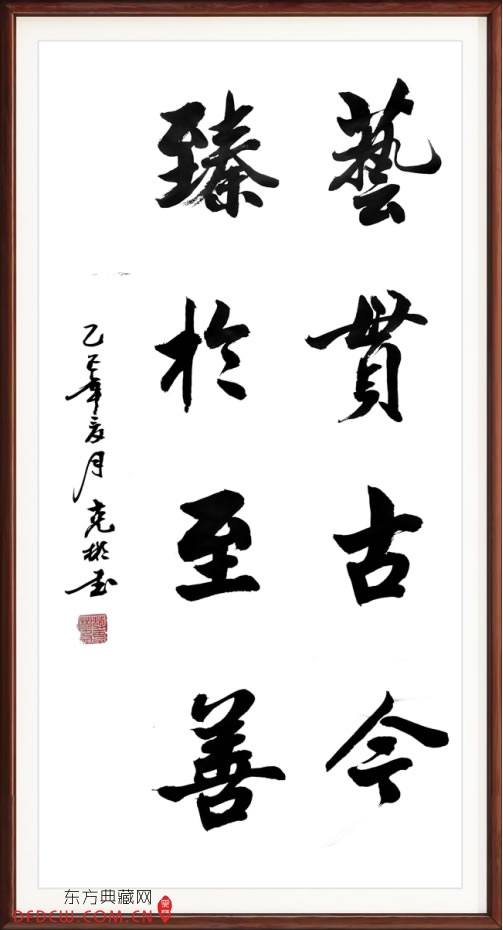 藝貫古今
臻於至善
乙巳年夏月
东方典藏网
DFDCW.COM.CN